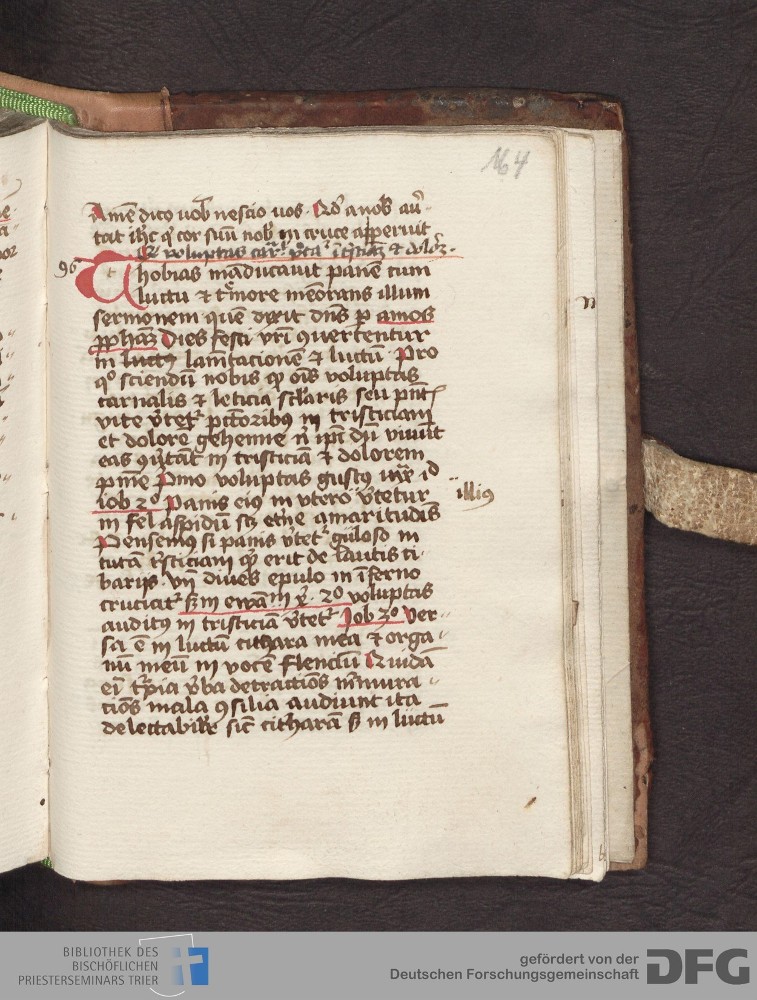 164
Amē dico uob̄ nescio uos. Qd̓ a nob̓ au̓
tat ih̄c q̓ cor suū nob̓ in cruce apperuit
96
Q voluptas car̓
Thobias māducauit panē cum
luctu & t̓more memorans illum
sermonem quē dixit dn̄s p amos
pphaȝ Dies festi vr̄i ꝯuertentur
in luctꝯ lam̄tacionē & luctū Pro
q̊ sciendū nobis ꝙ oīs voluptas
carnalis & leticia sc̄laris seu p̄nt̄
vite v̓tet̓ pctōribꝯ in tristiciam
et dolorē gehenne n̄ ip̄i dū viuūt
eas ꝯũtāt in tristiciā & dolorem
Pmo voluptas gustꝯ
iob 2º Panis eiꝯ in vtero v̓tetur
illiꝯ
in fel aspidū sc̄ et̓ne amaritudīs
Pensemꝯ si panis v̓tet̓ gulosō in
tātā t̓sticiam ꝙ erit de lautis ci
barijs vn̄ diues epulo in īferno
cruciat̓ sm̄ ewāᵐ 2º voluptas
auditꝯ in tristiciā v̓tet̓ Job 3º Ver
sa ē in luctū cithara mea & orga
nū meū in vocē flenciū Quidā
ei̓ t̓pia v̓ba detractiōs m̄mura
ciōs mala ꝯsilia audiunt ita
delectabilr̄ sic̄ citharā s̓ in luctū
BIBLIOTHEK DES
BISCHÖFLICHEN
PRIESTERSEMINARS TRIER
gefördert von der
Deutschen Forschungsgemeinschaft
DFG